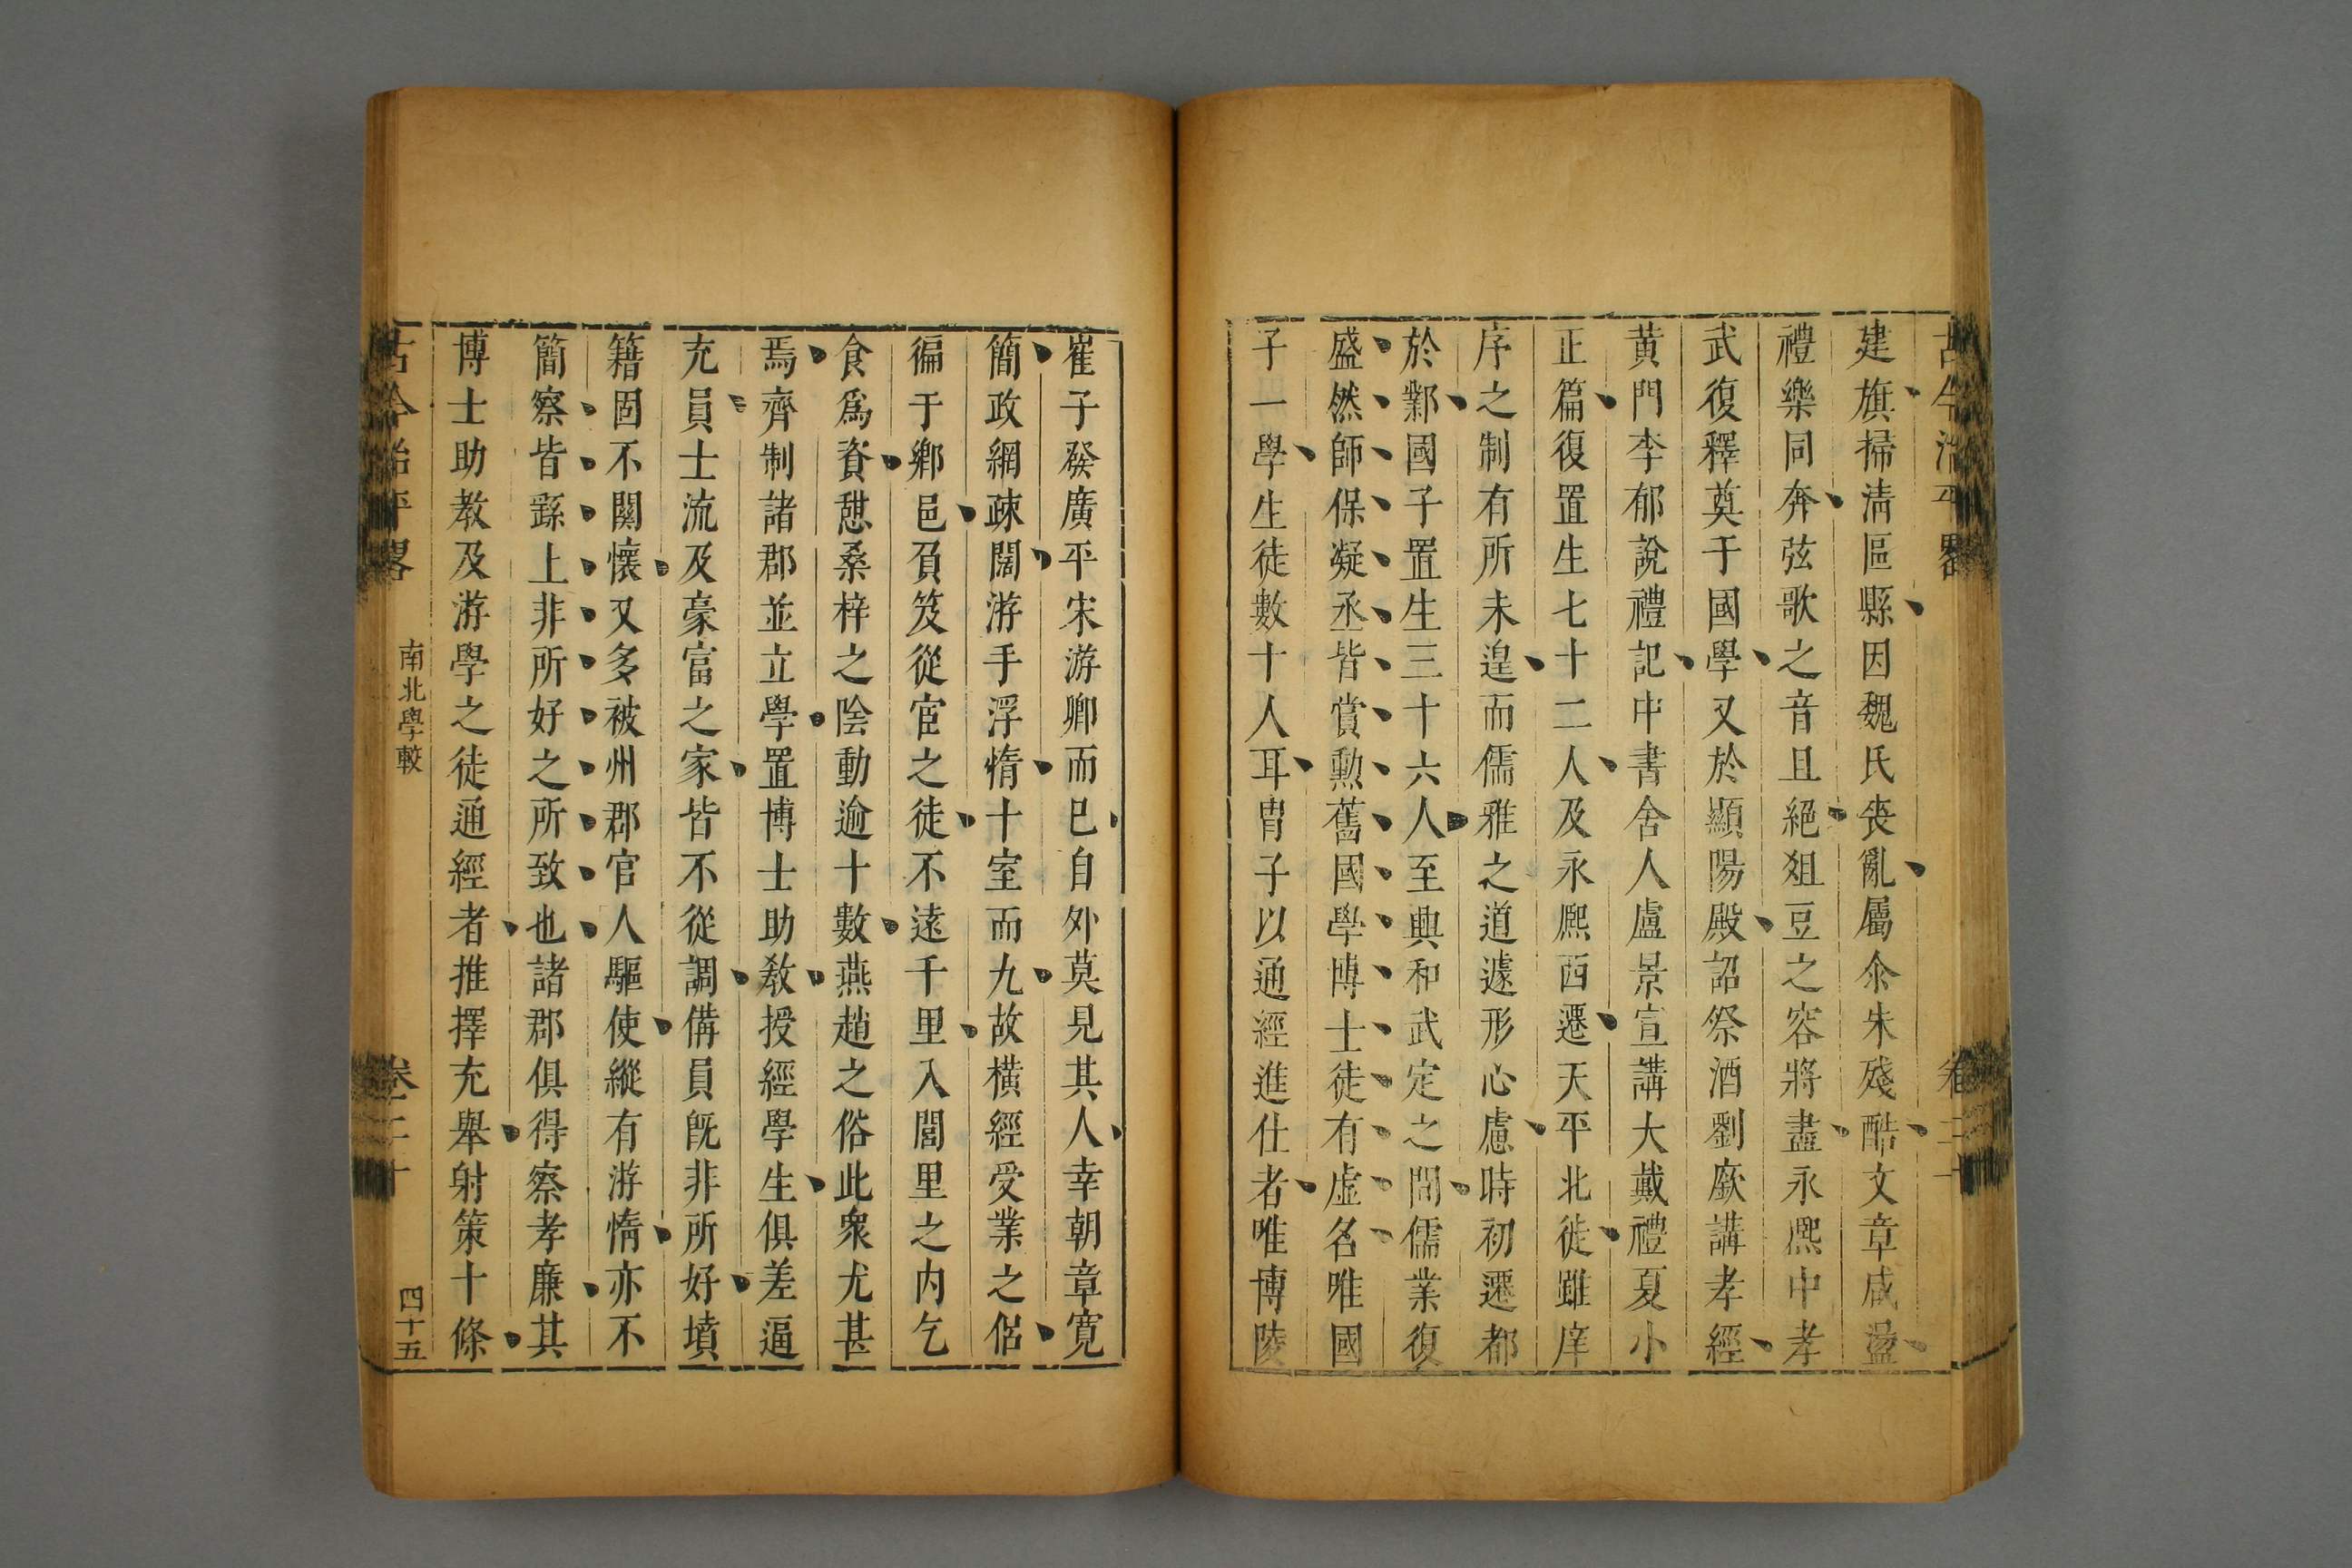 古今治平畧
卷二十
建旗掃淸區縣因魏氏喪亂屬尒朱殘酷文章咸盪
禮樂同奔弦歌之音且絕俎豆之容將盡永熙中孝
武復釋奠于國學又於顯陽殿詔祭酒劉廞講孝經
黃門李郁說禮記中書舍人盧景宣講大戴禮夏小
正篇復置生七十二人及永熙西遷天平北徙雖庠
序之制有所未遑而儒雅之道遽形心慮時初遷都
於鄴國子置生三十六人至興和武定之間儒業復
盛然師保凝丞皆賞勲舊國學博士徒有虛名唯國
子一學生徒數十人耳胄子以通經進仕者唯博陵
崔子發廣平宋游卿而已自外莫見其人幸朝章寛
簡政網疎闊游手浮惰十室而九故橫經受業之侶
徧于鄉邑負笈從宦之徒不遠千里入閭里之内乞
食爲資憇桑梓之陰動逾十數燕趙之俗此衆尤甚
焉齊制諸郡並立學置博士助教授經學生俱差逼
充員士流及豪富之家皆不從調備員旣非所好墳
籍固不關懷又多被州郡官人驅使縱有游惰亦不
簡察皆繇上非所好之所致也諸郡俱得察孝廉其
博士助教及游學之徒通經者推擇充舉射策十條
古今治平畧
南北學較
卷二十
四十五